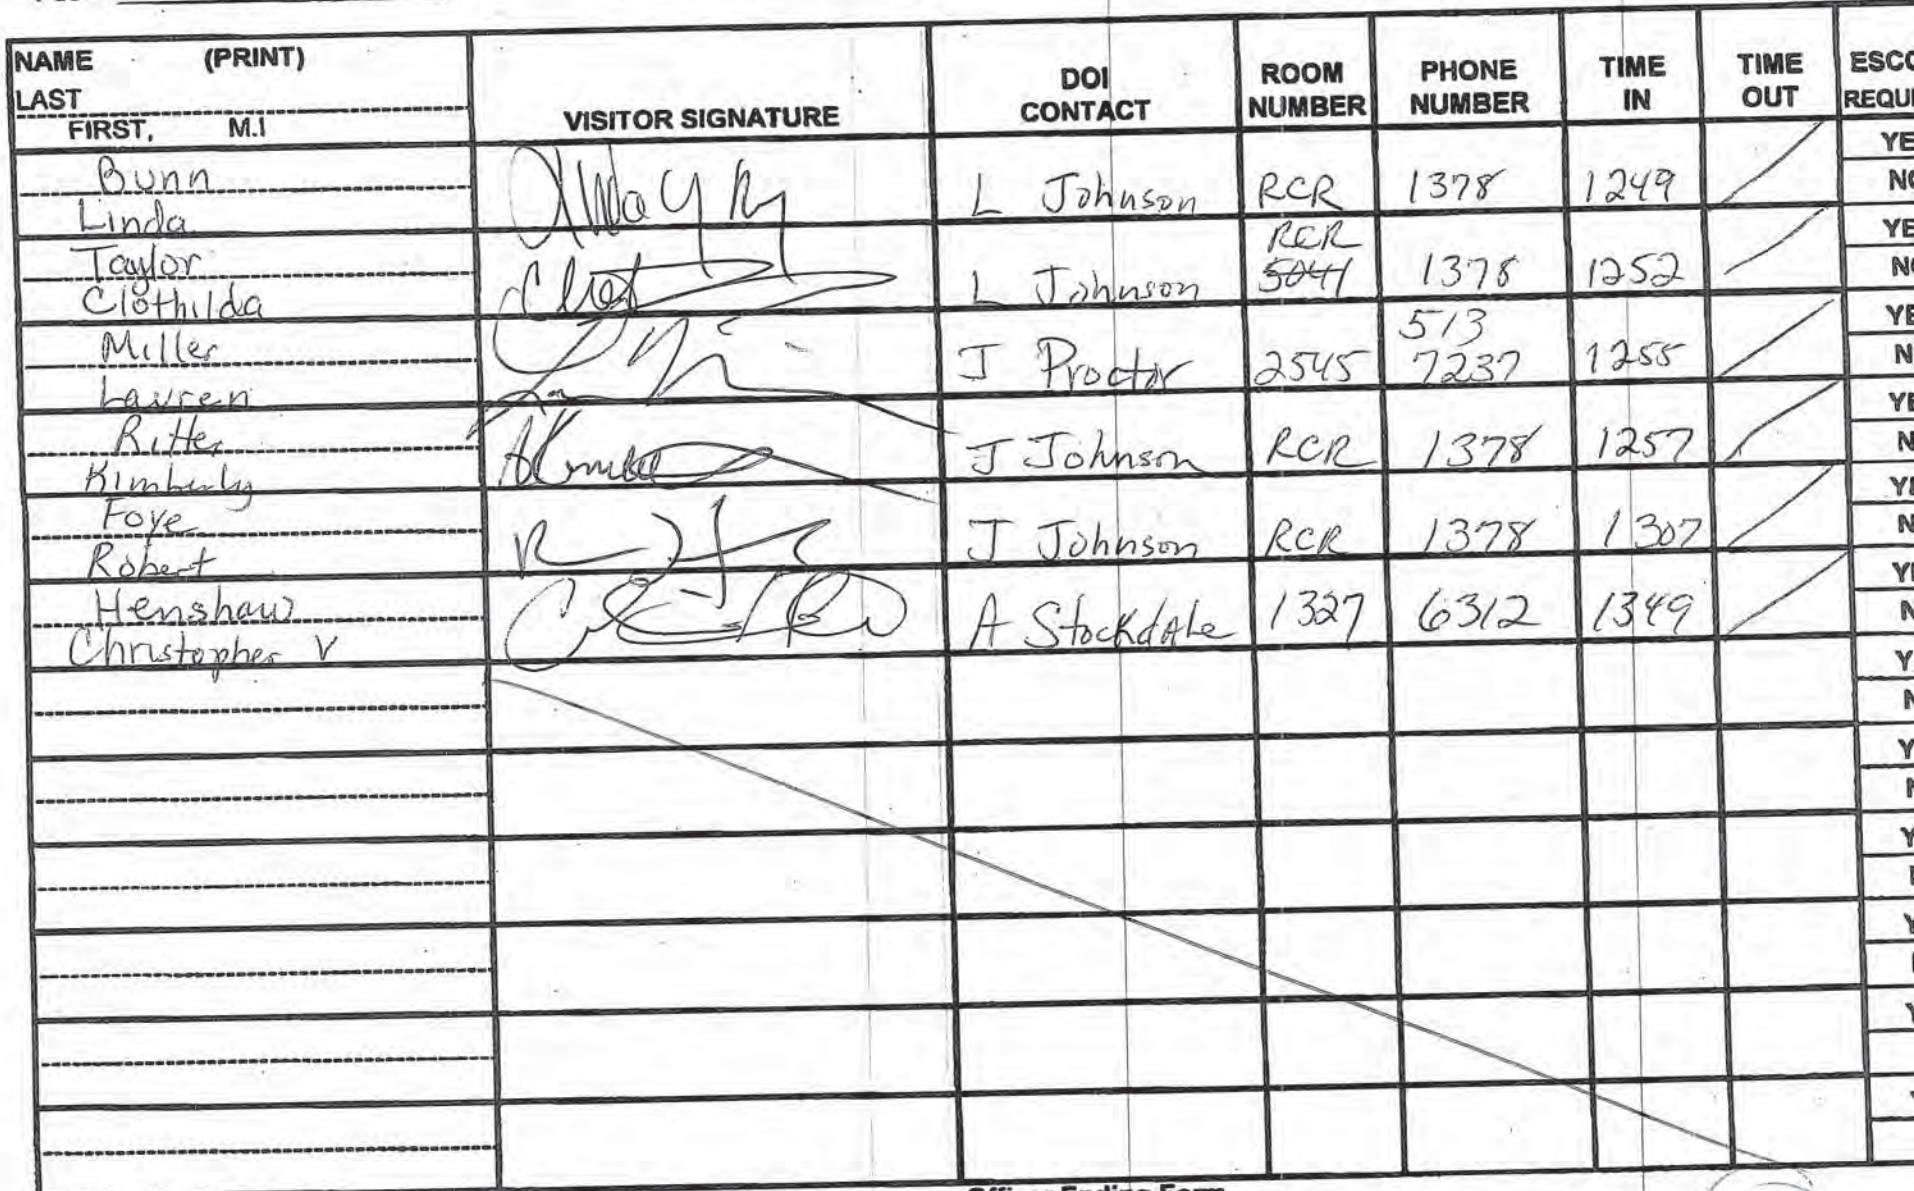 NAME (PRINT)
LAST
FIRST, M.I
VISITOR SIGNATURE
DOI CONTACT
ROOM NUMBER
PHONE NUMBER
TIME IN
TIME OUT
Bunn
Linda
L Johnson RCR 1378 1249
Taylor
Clothilda
RCR
L Johnson 5041 1378 1252
Miller
Lauren
513
J Proctor 2545 7237 1255
Ritter
Kimberly
J Johnson RCR 1378 1257
Foye
Robert
J Johnson RCR 1378 1307
Henshaw
Christopher V
A Stockdale 1327 6312 1349